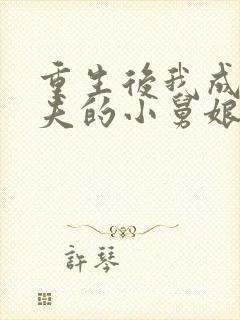 重生後我成
夫的小舅娘
許琴